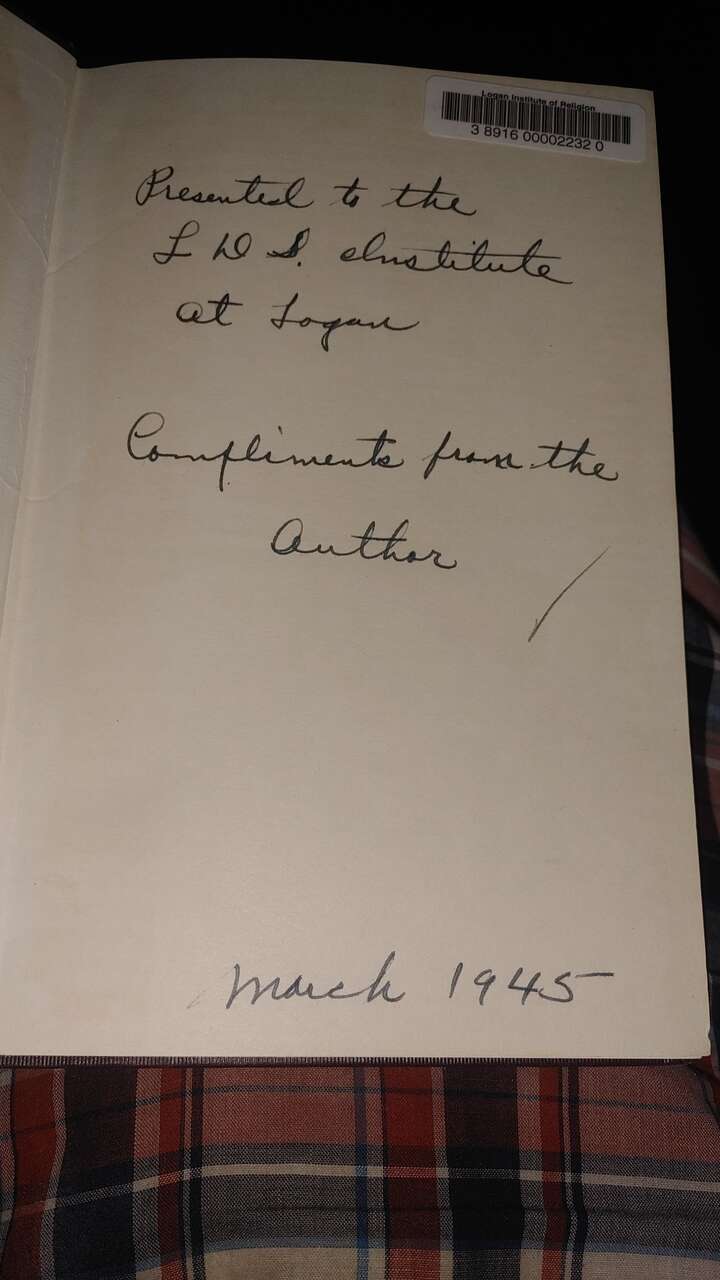 Logan Institute of Religion
3 8916 00002232 0
Presented to the
L D S. Institute
at Logan
Compliments from the
Author
March 1945